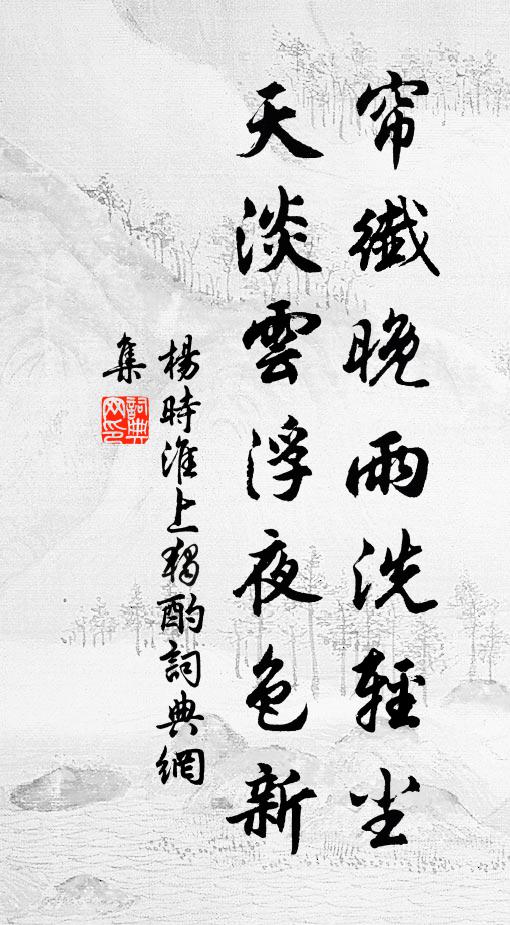 帘纖晚雨洗輕尘
天淡雲浮夜色新
楊時淮上獨酌詞典網
集
詞典
网印